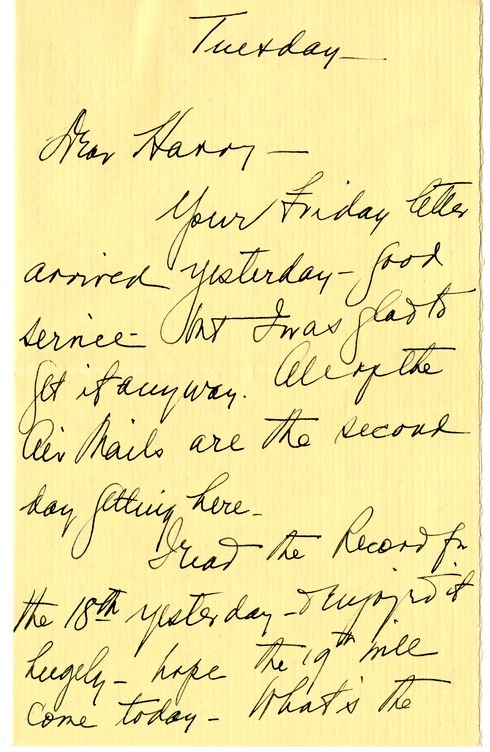 Tuesday—
Dear Harry—
Your Friday letter
arrived yesterday— good
service— but I was glad to
get it anyway. All of the
Air Mails are the second
day getting here—
I read the Record for
the 18th yesterday— & enjoyed it
hugely— hope the 19th will
come today— What's the